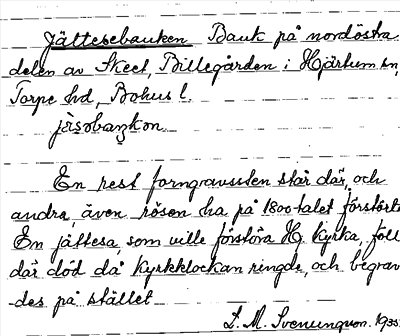 Jättesebauken Bank på nordöstra
delen av Skeet, Billegården i Hjärtum sn,
Torpe hd, Bohus l.
En rest forngravsten står där, och
andra, även rösen ha på 1800talet förstört
En jättesa, som ville förstöra H kyrka, föll
där död då kyrkklockan ringde, och begrav
-des på stället
L. M. Svenungson. 1935